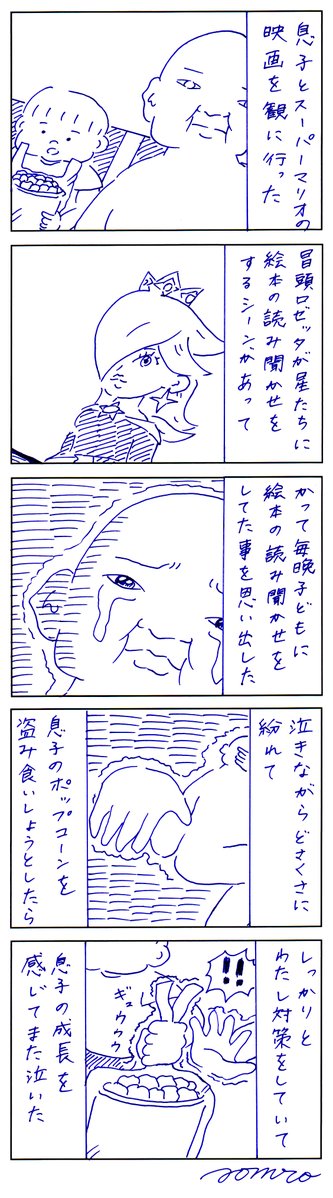 息子とスーパーマリオの
映画を観に行った
冒頭ロゼッタが星たちに
絵本の読み聞かせを
するシーンがあって
かつて毎晩子どもに
絵本の読み聞かせを
してた事を思い出した
泣きながらどさくさに
紛れて
息子のポップコーンを
盗み食いしようとしたら
しっかりと
わたし対策をしていて
!!
ギュウウウ
息子の成長を
感じてまた泣いた